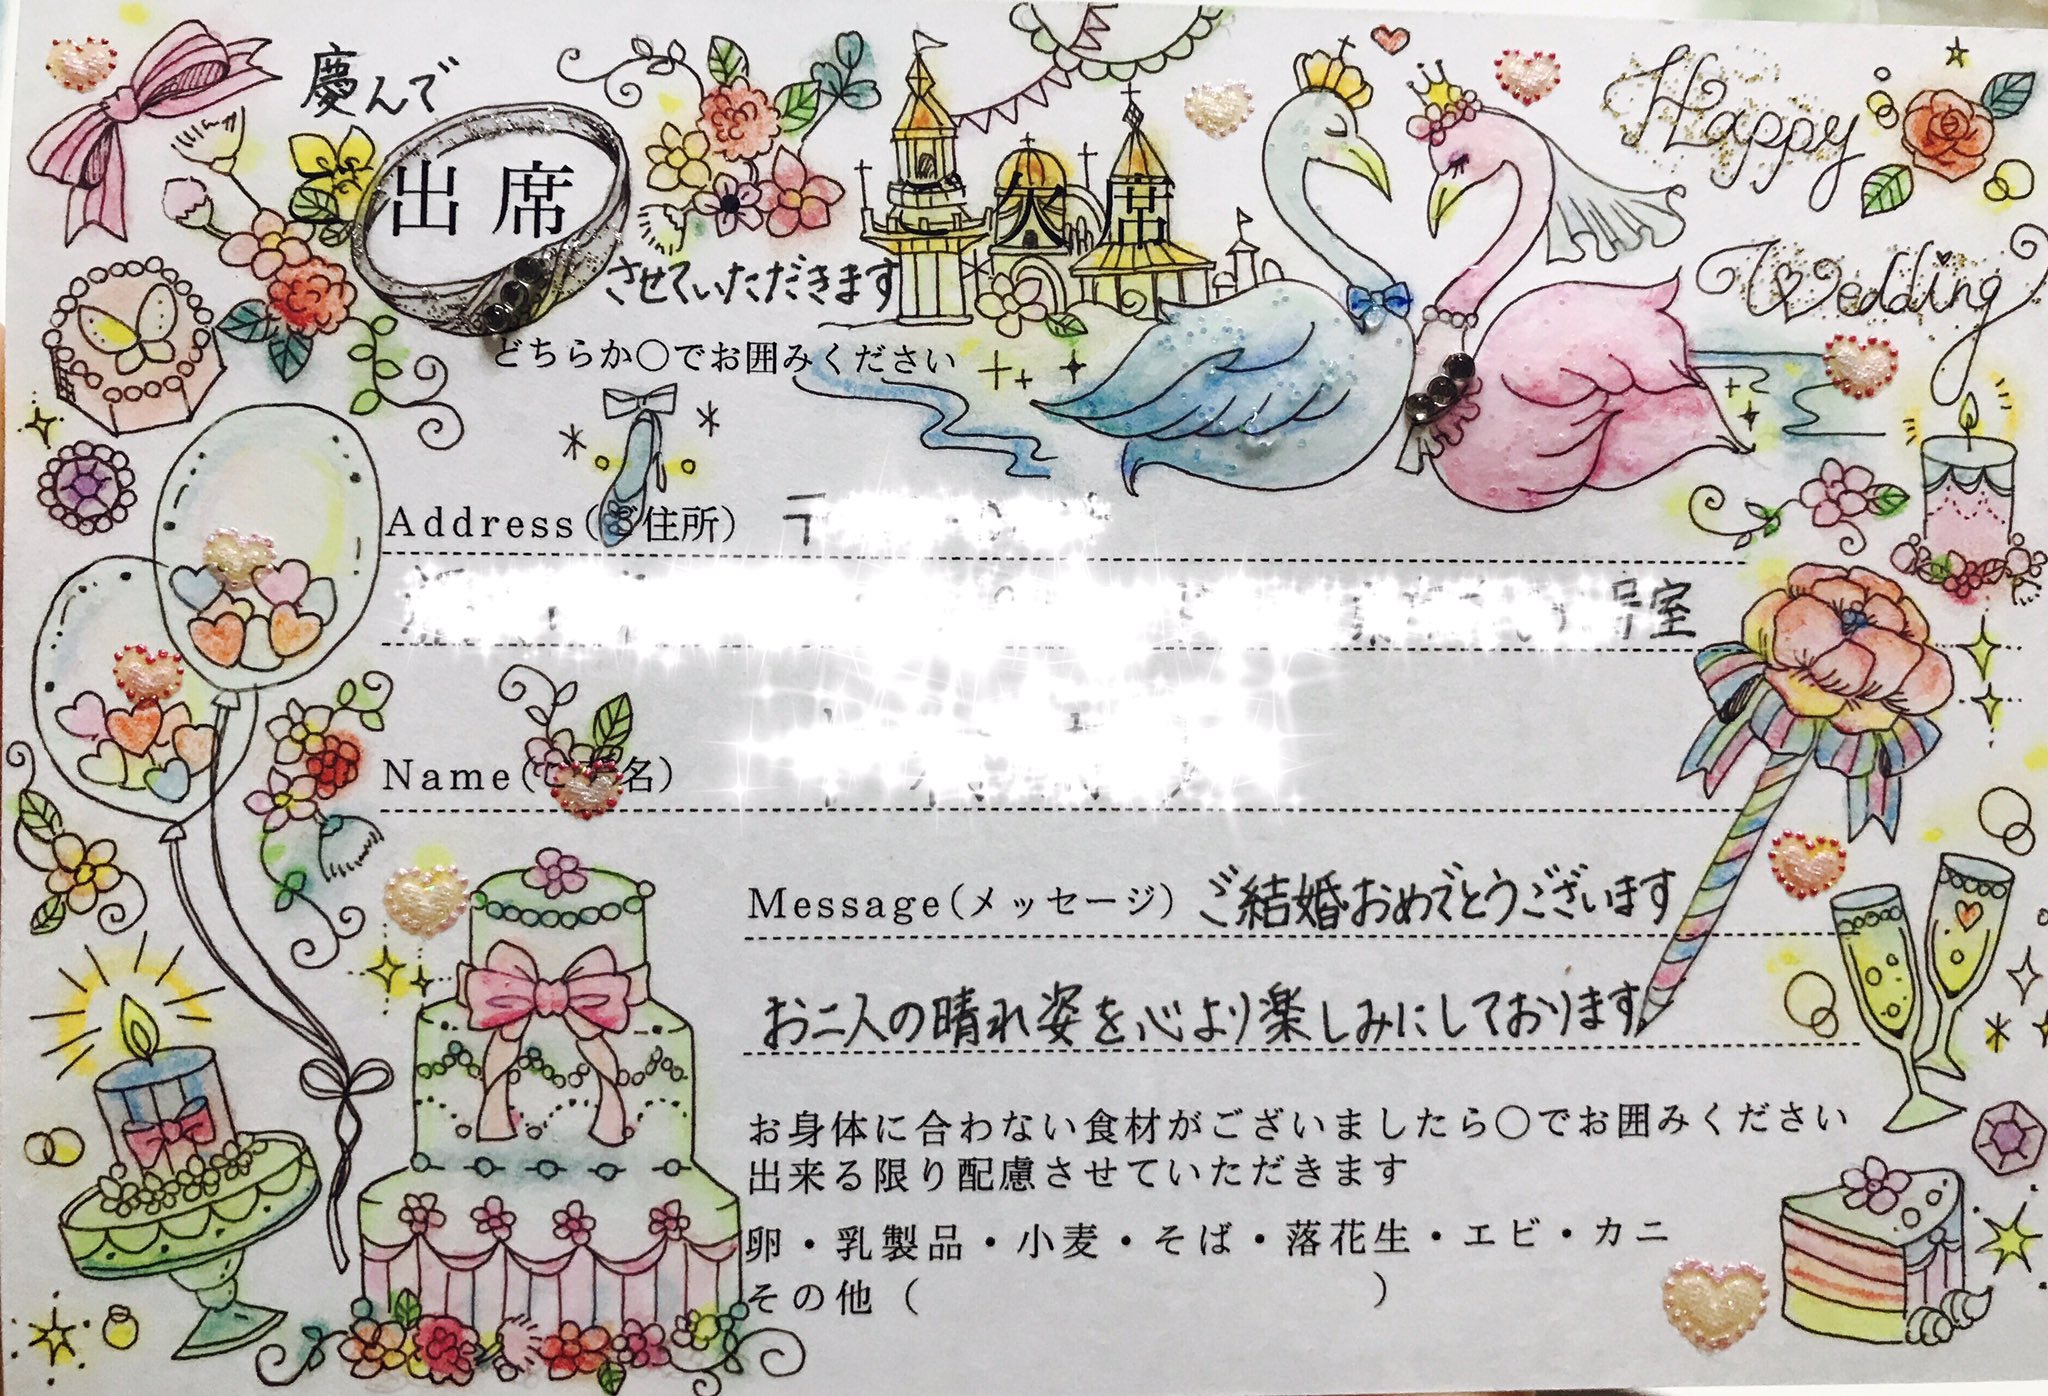 慶んで
出席
欠席
させていただきます
どちらか○でお囲みください
Happy
Wedding
Address(ご住所) 〒
号室
Name(ご 名)
Message(メッセージ) ご結婚おめでとうございます
お二人の晴れ姿を心より楽しみにしております
お身体に合わない食材がございましたら○でお囲みください
出来る限り配慮させていただきます
卵・乳製品・小麦・そば・落花生・エビ・カニ
その他( )